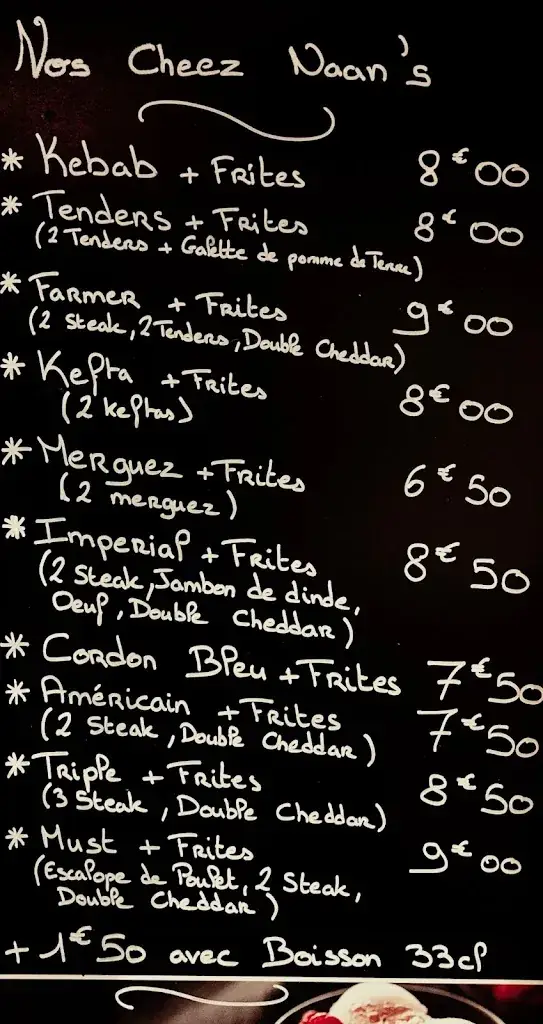 Nos Cheez Naan's
* Kebab + Frites 8€00
* Tenders + Frites 8€00
(2 Tenders + Galette de pomme de Terre)
* Farmer + Frites 9€00
(2 Steak, 2 Tenders, Double Cheddar)
* Kefta + Frites 8€00
(2 keftas)
* Merguez + Frites 6€50
(2 merguez)
* Imperial + Frites 8€50
(2 Steak, Jambon de dinde,
Oeuf, Double Cheddar)
* Cordon Bleu + Frites 7€50
* Américain + Frites 7€50
(2 Steak, Double Cheddar)
* Triple + Frites 8€50
(3 Steak, Double Cheddar)
* Must + Frites 9€00
(Escalope de Poulet, 2 Steak,
Double Cheddar)
+ 1€50 avec Boisson 33cl